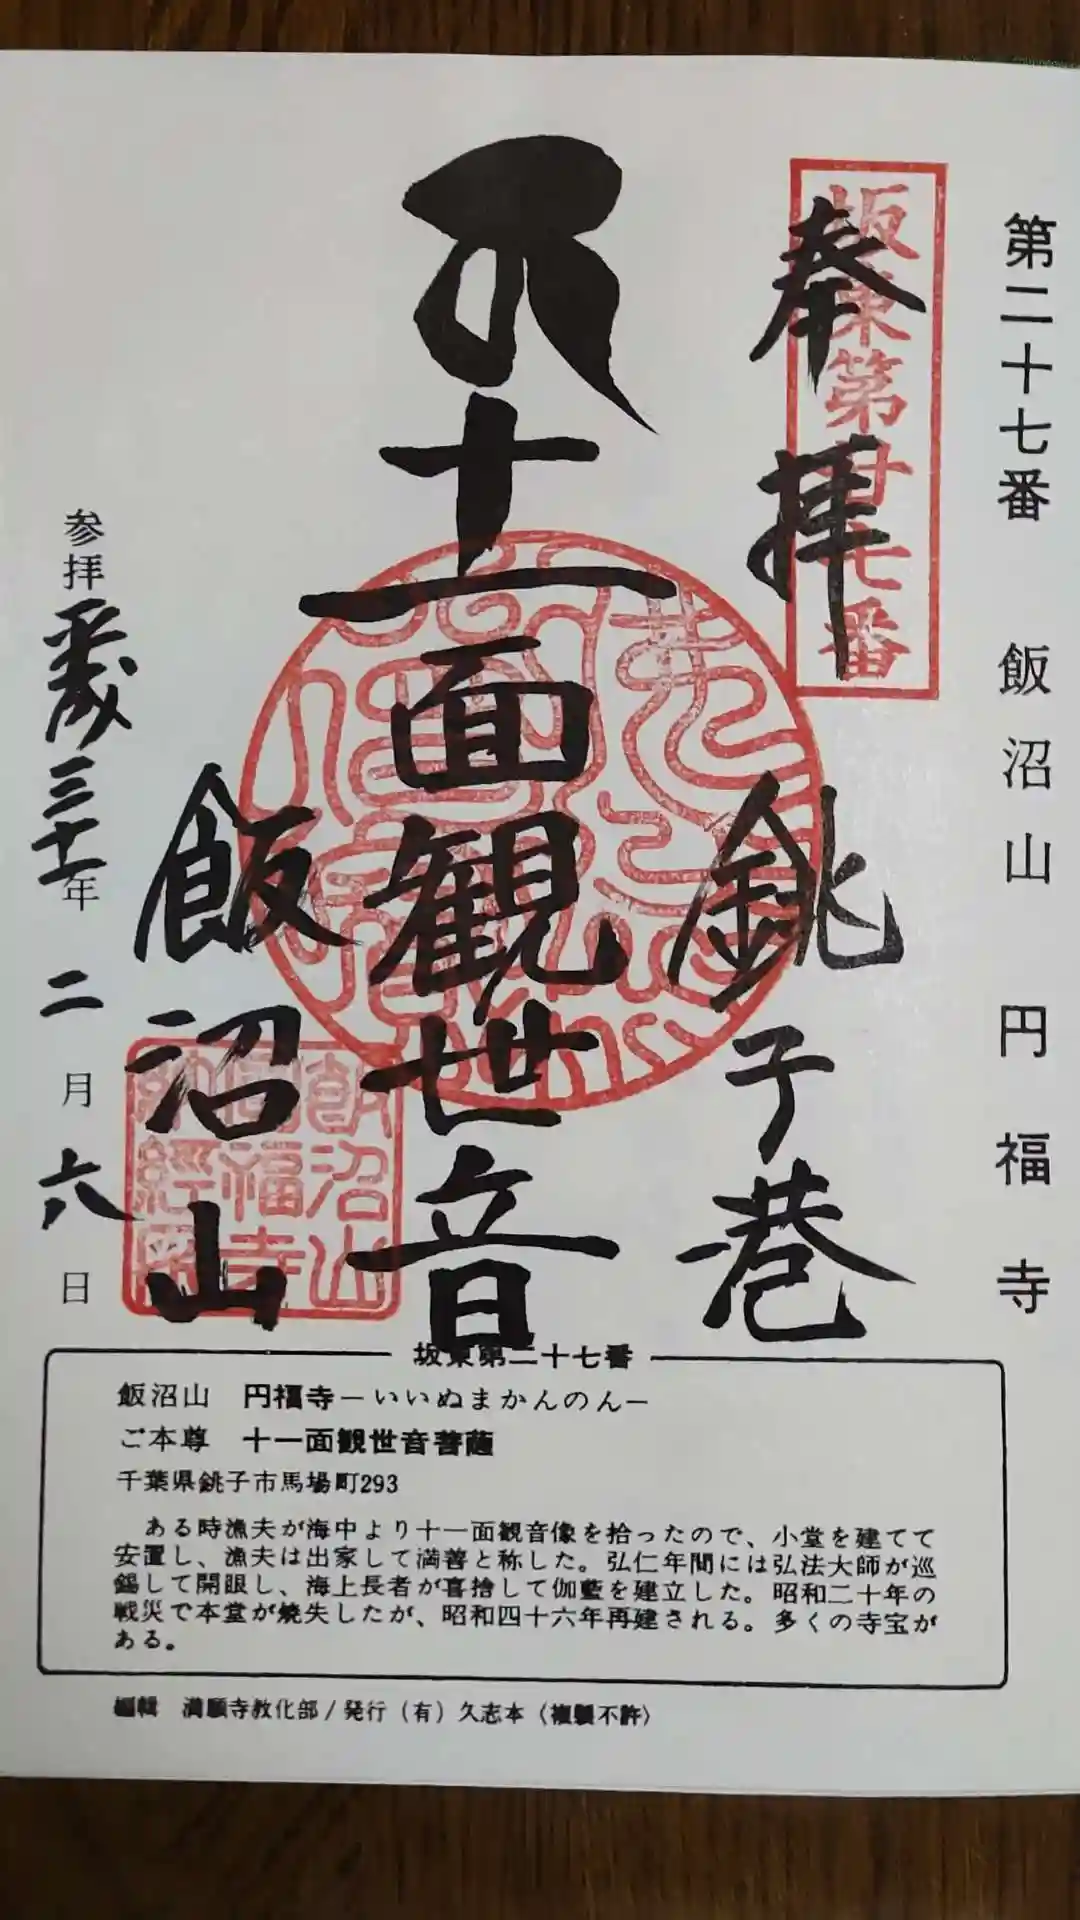 第二十七番 飯沼山 円福寺
坂東第廿七番
奉拝
銚子巷
十一面観世音
飯沼山
飯沼山
円福寺
納経
参拝 平成三十一年 二月 六日
坂東第二十七番
飯沼山 円福寺ーいいぬまかんのんー
ご本尊 十一面観世音菩薩
千葉県銚子市馬場町293
ある時漁夫が海中より十一面観音像を拾ったので、小堂を建てて
安置し、漁夫は出家して満善と称した。弘仁年間には弘法大師が巡
錫して開眼し、海上長者が喜捨して伽藍を建立した。昭和二十年の
戦災で本堂が焼失したが、昭和四十六年再建される。多くの寺宝が
ある。
編輯 満願寺教化部/発行(有)久志本〈複製不許〉